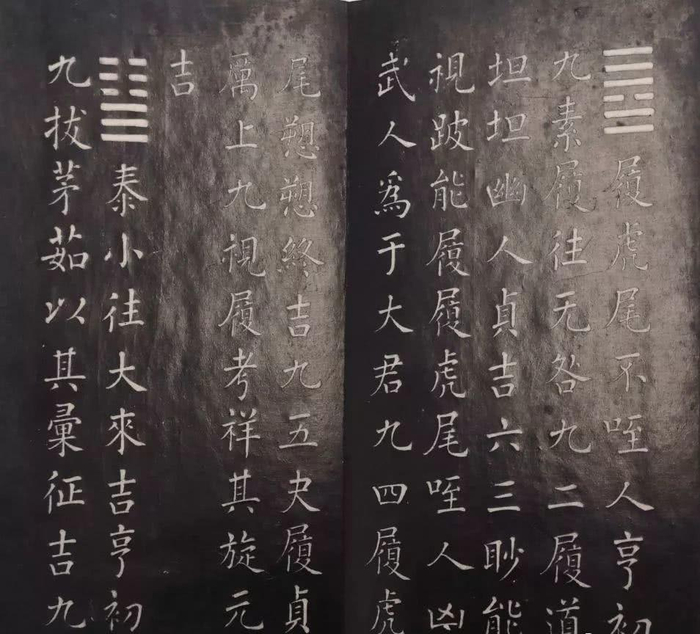 ䷉履虎尾不咥人亨初
九素履往无咎九二履道
坦坦幽人貞吉六三眇能
視跛能履履虎尾咥人凶
武人爲于大君九四履虎
尾愬愬終吉九五夬履貞
厲上九視履考祥其旋元
吉
䷊泰小往大來吉亨初
九拔茅茹以其彙征吉九